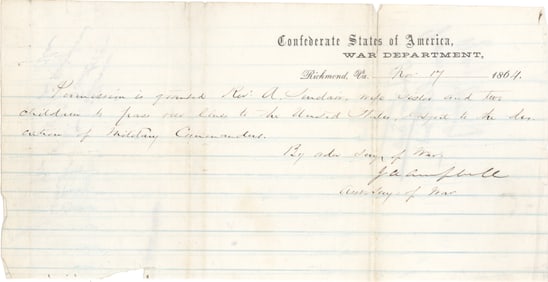 Confederate States of America,
WAR DEPARTMENT,
Richmond, Va. Nov 17 1864.
Permission is granted Rev A. Sinclair, wife sister and two
children to pass our lines to the United States, subject to the dis
cretion of Military Commanders.
By order Secy of War
J A Campbell
Asst Secy of War